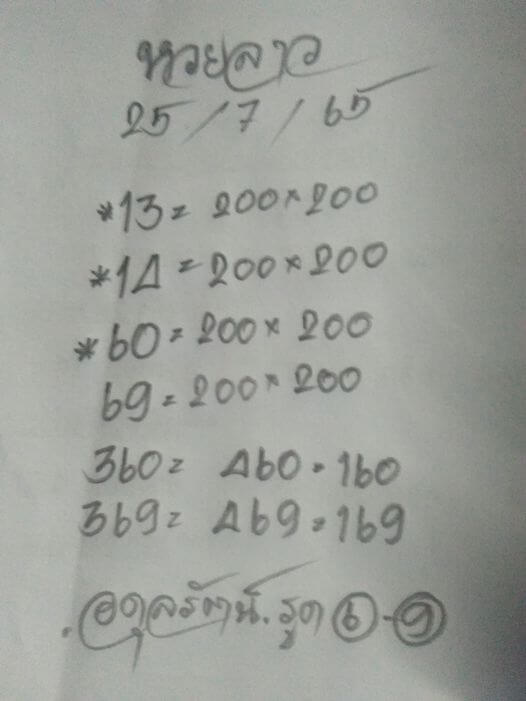 หวยลาว
25/7/65
*13 = 200×200
*14 = 200×200
*60 = 200×200
69 = 200×200
360 = 460 = 160
369 = 469 = 169
.อดุลรัตน์. รูด 6-9